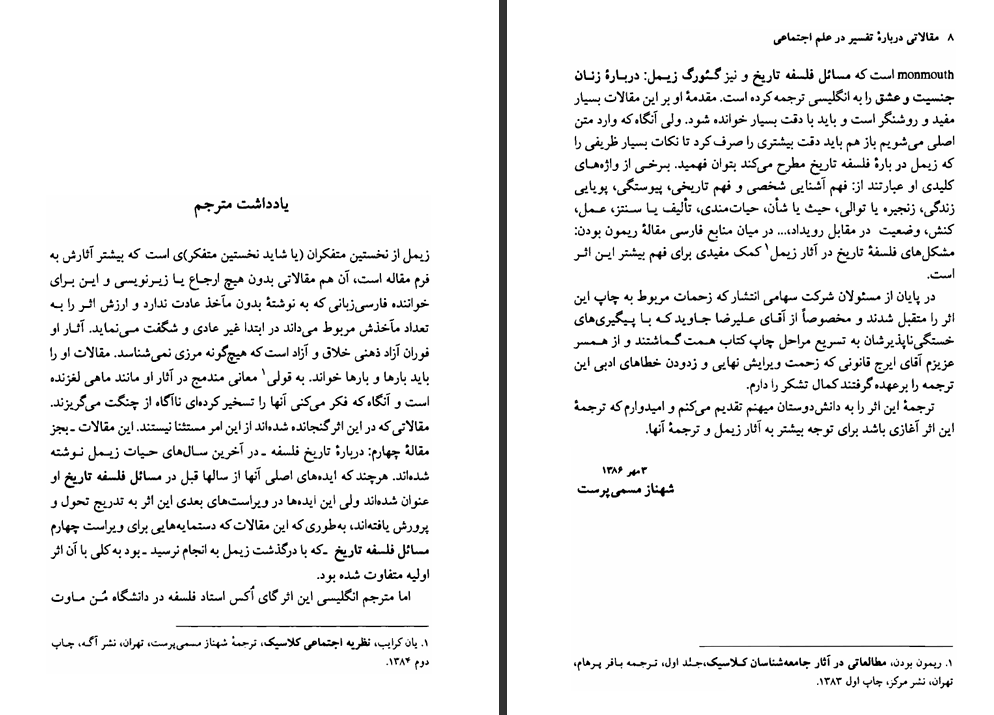 یادداشت مترجم
زیمل از نخستین متفکران (یا شاید نخستین متفکر)ی است که بیشتر آثارش به
فرم مقاله است، آن هم مقالاتی بدون هیچ ارجاع یا زیرنویسی و این برای
خواننده فارسی‌زبانی که به نوشتهٔ بدون مآخذ عادت ندارد و ارزش اثر را به
تعداد مآخذش مربوط می‌داند در ابتدا غیر عادی و شگفت می‌نماید. آثار او
فوران آزاد ذهنی خلاق و آزاد است که هیچ‌گونه مرزی نمی‌شناسد. مقالات او را
باید بارها و بارها خواند. به قولی۱ معانی مندمج در آثار او مانند ماهی لغزنده
است و آنگاه که فکر می‌کنی آنها را تسخیر کرده‌ای ناآگاه از چنگت می‌گریزند.
مقالاتی که در این اثر گنجانده شده‌اند از این امر مستثنا نیستند. این مقالات ـ بجز
مقالهٔ چهارم: دربارهٔ تاریخ فلسفه ـ در آخرین سال‌های حیات زیمل نوشته
شده‌اند. هرچند که ایده‌های اصلی آنها از سالها قبل در مسائل فلسفه تاریخ او
عنوان شده‌اند ولی این ایده‌ها در ویراست‌های بعدی این اثر به تدریج تحول و
پرورش یافته‌اند، به‌طوری که این مقالات که دستمایه‌هایی برای ویراست چهارم
مسائل فلسفه تاریخ ـ که با درگذشت زیمل به انجام نرسید ـ بود به کلی با آن اثر
اولیه متفاوت شده بود.
اما مترجم انگلیسی این اثر گای اُکس استاد فلسفه در دانشگاه مُـن ماوت
۱. یان کرایب، نظریه اجتماعی کلاسیک، ترجمهٔ شهناز مسمی‌پرست، تهران، نشر آگه، چاپ
دوم ۱۳۸۴.
۸ مقالاتی دربارهٔ تفسیر در علم اجتماعی
monmouth است که مسائل فلسفه تاریخ و نیز گئورگ زیمل: دربارهٔ زنان
جنسیت و عشق را به انگلیسی ترجمه کرده است. مقدمهٔ او بر این مقالات بسیار
مفید و روشنگر است و باید با دقت بسیار خوانده شود. ولی آنگاه که وارد متن
اصلی می‌شویم باز هم باید دقت بیشتری را صرف کرد تا نکات بسیار ظریفی را
که زیمل در بارهٔ فلسفه تاریخ مطرح می‌کند بتوان فهمید. برخی از واژه‌های
کلیدی او عبارتند از: فهم آشنایی شخصی و فهم تاریخی، پیوستگی، پویایی
زندگی، زنجیره یا توالی، حیث یا شأن، حیات‌مندی، تألیف یا سنتز، عمل،
کنش، وضعیت در مقابل رویداد،... در میان منابع فارسی مقالهٔ ریمون بودن:
مشکل‌های فلسفهٔ تاریخ در آثار زیمل۱ کمک مفیدی برای فهم بیشتر این اثر
است.
در پایان از مسئولان شرکت سهامی انتشار که زحمات مربوط به چاپ این
اثر را متقبل شدند و مخصوصاً از آقای علیرضا جاوید که با پیگیری‌های
خستگی‌ناپذیرشان به تسریع مراحل چاپ کتاب همت گماشتند و از همسر
عزیزم آقای ایرج قانونی که زحمت ویرایش نهایی و زدودن خطاهای ادبی این
ترجمه را برعهده گرفتند کمال تشکر را دارم.
ترجمهٔ این اثر را به دانش‌دوستان میهنم تقدیم می‌کنم و امیدوارم که ترجمهٔ
این اثر آغازی باشد برای توجه بیشتر به آثار زیمل و ترجمهٔ آنها.
۳ مهر ۱۳۸۶
شهناز مسمی‌پرست
۱. ریمون بودن، مطالعاتی در آثار جامعه‌شناسان کلاسیک، جلد اول، ترجمه باقر پرهام،
تهران، نشر مرکز، چاپ اول ۱۳۸۳.